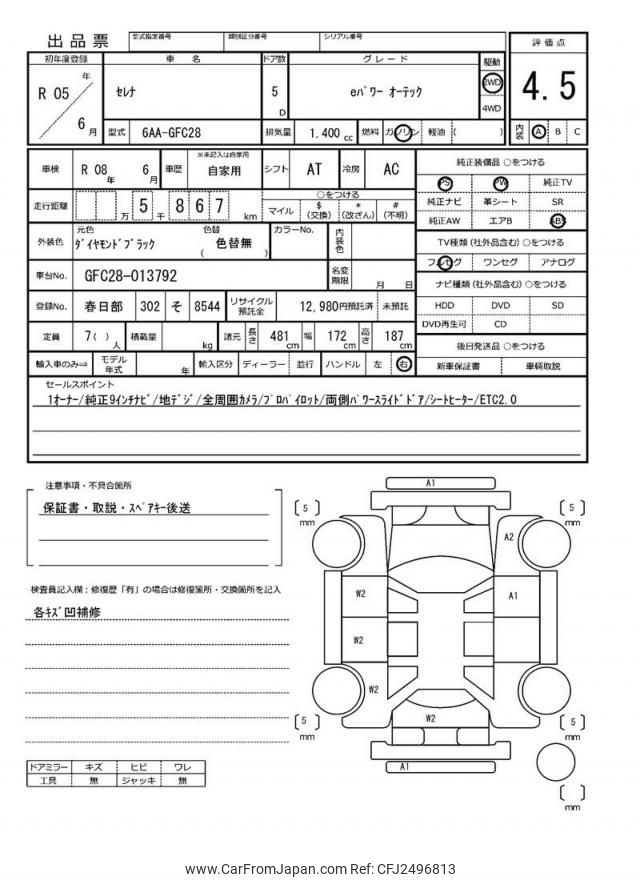 出品票
型式指定番号 類別区分番号 シリアル番号
評価点
4.5
内装 A B C
初年度登録 車名 ドア数 グレード 駆動
R 05 年 6 月
ｾﾚﾅ
5 D
eﾊﾟﾜｰ ｵｰﾃｯｸ
2WD
4WD
型式 6AA-GFC28 排気量 1.400 cc 燃料 ガソリン 軽油 ( )
車検 R 08 年 6 月 車歴 ※未記入は自家用 自家用 シフト AT 冷房 AC
走行距離 万 5 千 8 6 7 km
○をつける
マイル $ (交換) * (改ざん) # (不明)
外装色 元色 ﾀﾞｲﾔﾓﾝﾄﾞﾌﾞﾗｯｸ 色替 ( 色替無 ) カラーNo. 内装色
車台No. GFC28-013792 名変期限 月 日
登録No. 春日部 302 そ 8544 リサイクル預託金 12,980円預託済 未預託
定員 7( ) 人 積載量 kg 諸元 長さ 481 cm 幅 172 cm 高さ 187 cm
輸入車のみ⇒ モデル年式 年 輸入区分 ディーラー 並行 ハンドル 左 右
純正装備品 ○をつける
PS PW 純正TV
純正ナビ 革シート SR
純正AW エアB ABS
TV種類 (社外品含む) ○をつける
フルセグ ワンセグ アナログ
ナビ種類 (社外品含む) ○をつける
HDD DVD SD
DVD再生可 CD
後日発送品 ○をつける
新車保証書 車輌取説
セールスポイント
1ｵｰﾅｰ/純正9ｲﾝﾁﾅﾋﾞ/地ﾃﾞｼﾞ/全周囲ｶﾒﾗ/ﾌﾟﾛﾊﾟｲﾛｯﾄ/両側ﾊﾟﾜｰｽﾗｲﾄﾞﾄﾞｱ/ｼｰﾄﾋｰﾀｰ/ETC2.0
注意事項・不具合箇所
保証書・取説・ｽﾍﾟｱｷｰ後送
検査員記入欄：修復歴「有」の場合は修復箇所・交換箇所を記入
各ｷｽﾞ凹補修
ドアミラー キズ ヒビ ワレ
工具 無 ジャッキ 無
A1
5 mm
5 mm
A2
W2
A1
W2
W2
W2
5 mm
5 mm
A1
mm
www.CarFromJapan.com Ref: CFJ2496813